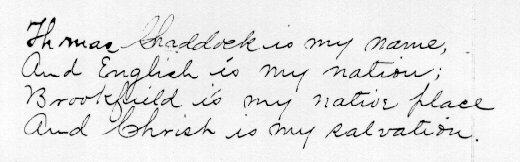 Thomas Shaddock is my name,
And English is my nation;
Brookfield is my native place
And Christ is my salvation.